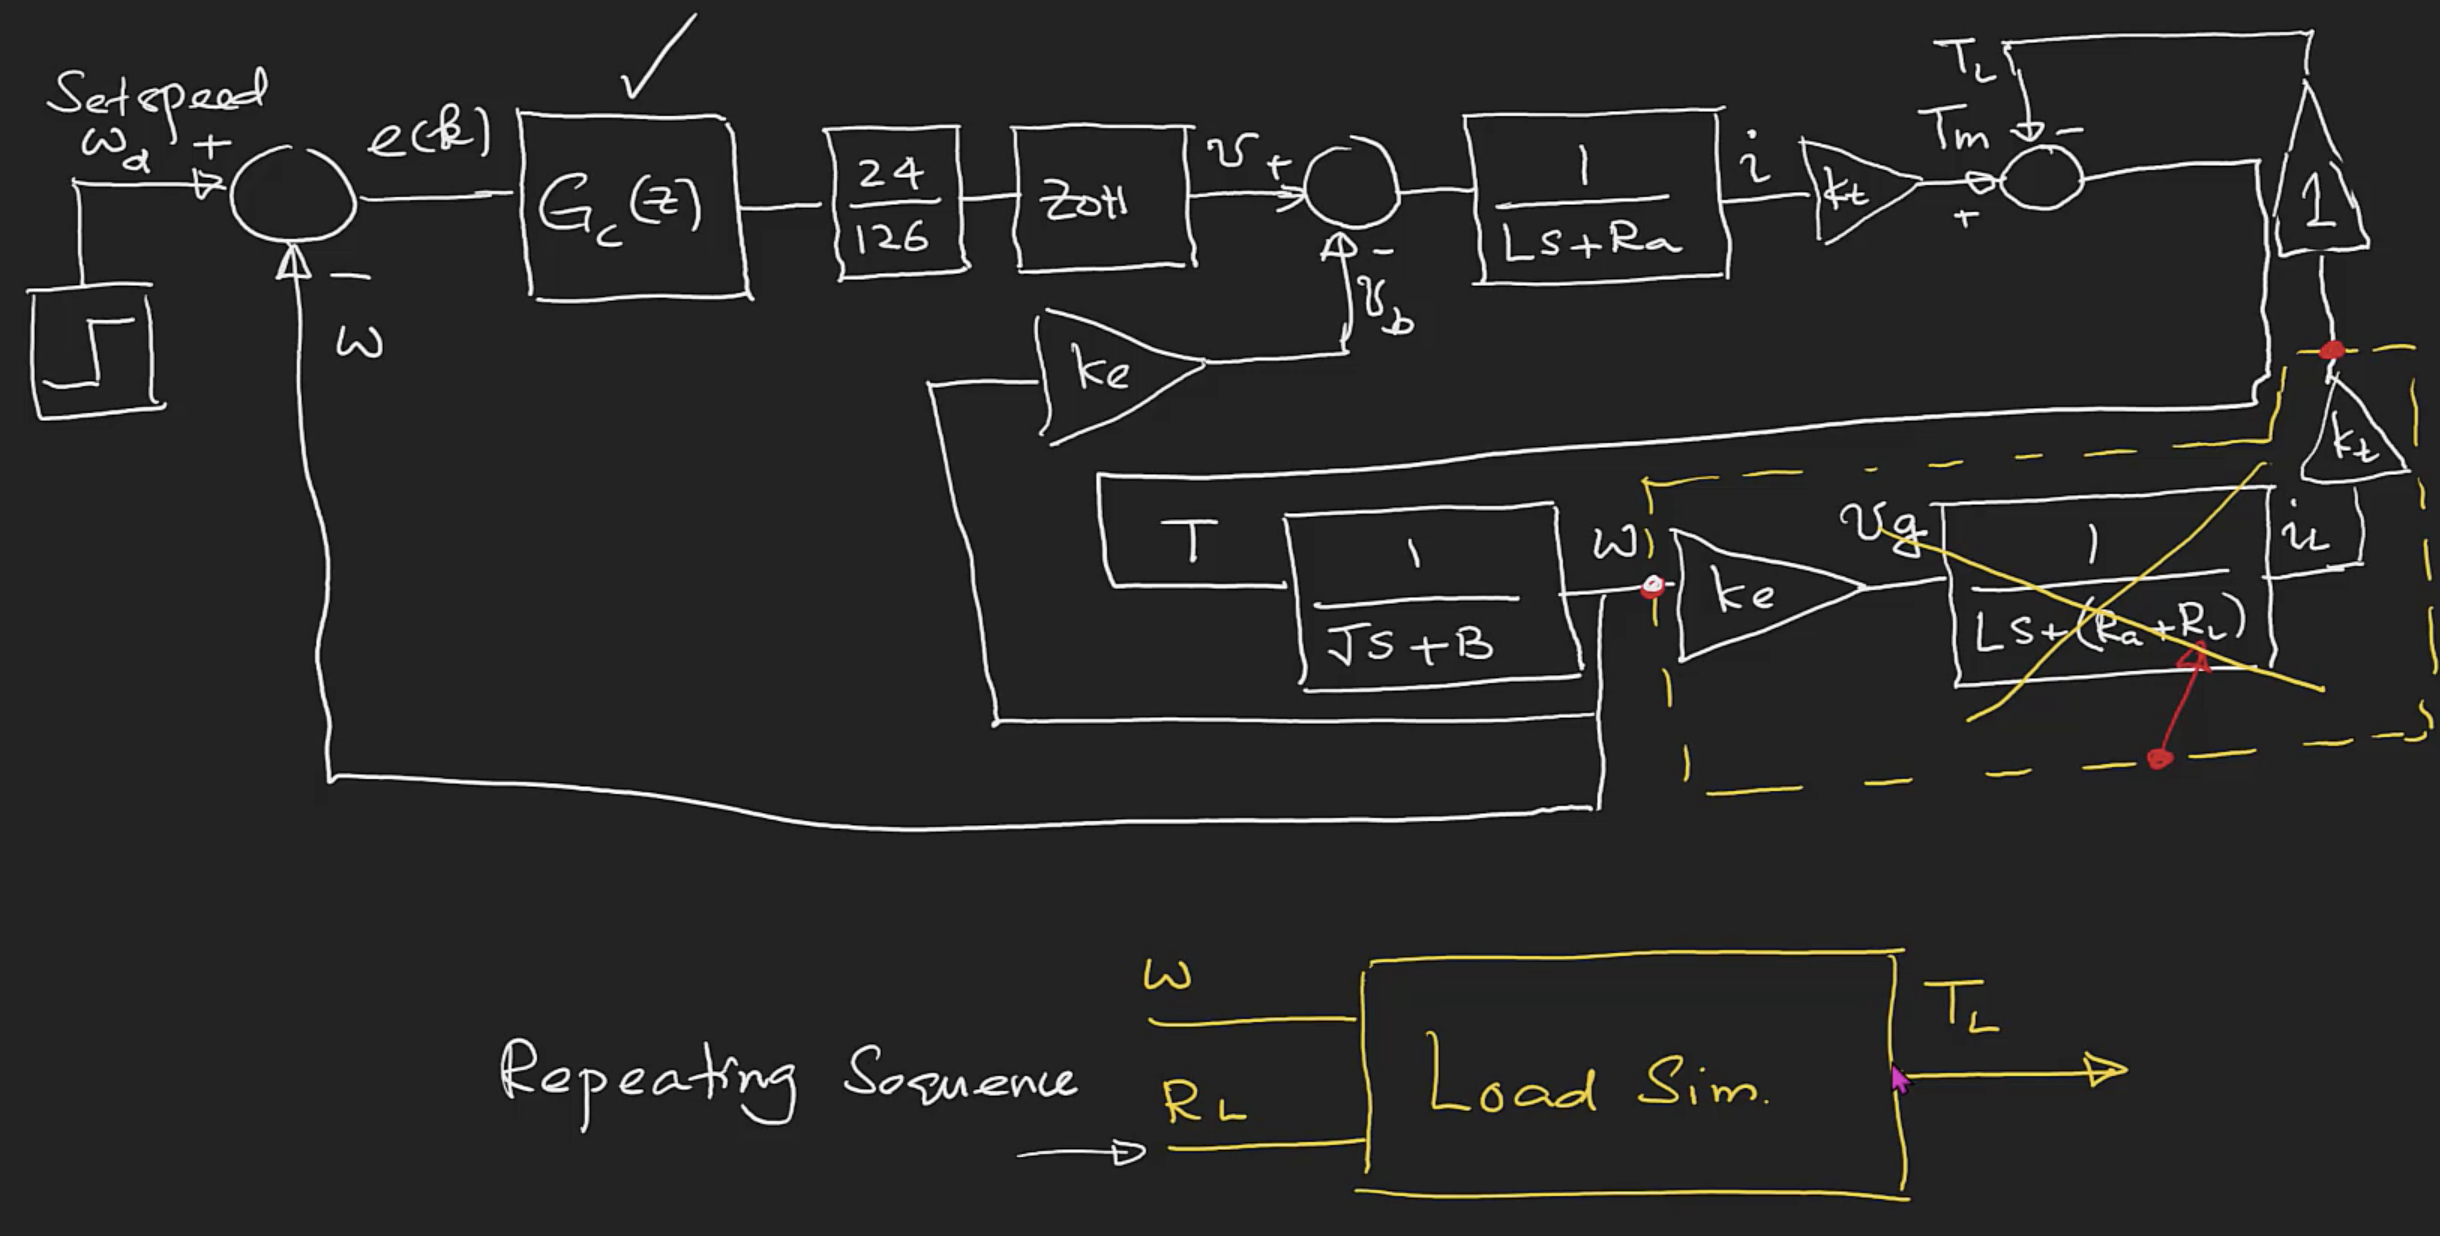 Setspeed
ωd +
e(k)
Gc(z)
24
126
ZOH
v +
1
LS+Ra
i
kt
Tm
+
TL
-
1
-
ω
ke
-
vb
T
1
JS+B
ω
ke
vg
1
LS+(Ra+RL)
iL
kt
Repeating Sequence
ω
RL
Load Sim.
TL